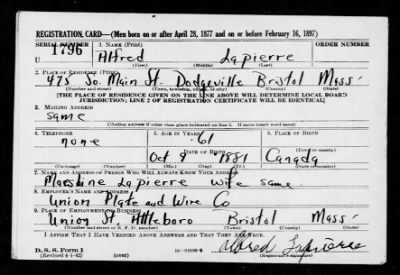 REGISTRATION CARD—(Men born on or after April 28, 1877 and on or before February 16, 1897)
SERIAL NUMBER 1. NAME (Print) ORDER NUMBER
U 1796 Alfred Lapierre
(First) (Middle) (Last)
2. PLACE OF RESIDENCE (Print)
475 So. Main St. Dodgeville Bristol Mass
(Number and street) (Town, township, village, or city) (County) (State)
[THE PLACE OF RESIDENCE GIVEN ON THE LINE ABOVE WILL DETERMINE LOCAL BOARD
JURISDICTION; LINE 2 OF REGISTRATION CERTIFICATE WILL BE IDENTICAL]
3. MAILING ADDRESS
same
[Mailing address if other than place indicated on line 2. If same insert word same]
4. TELEPHONE 5. AGE IN YEARS 6. PLACE OF BIRTH
none 61
DATE OF BIRTH
Oct 9 1881 Canada
(Exchange) (Number) (Mo.) (Day) (Yr.) (State or country)
7. NAME AND ADDRESS OF PERSON WHO WILL ALWAYS KNOW YOUR ADDRESS
Lapierre wife same
8. EMPLOYER'S NAME AND ADDRESS
Union Plate and Wire Co
9. PLACE OF EMPLOYMENT OR BUSINESS
Union St. Attleboro Bristol Mass
(Number and street or R. F. D. number) (Town) (County) (State)
I AFFIRM THAT I HAVE VERIFIED ABOVE ANSWERS AND THAT THEY ARE TRUE.
D. S. S. Form 1
(Revised 4-1-42) (over)
Alfred Lapierre
(Registrant's signature)